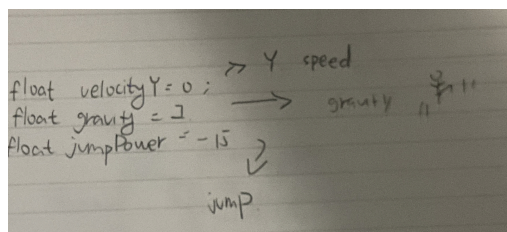 float velocityY = 0 ; >> Y speed
float gravity = 1 → gravity
float jumpPower = -15
jump